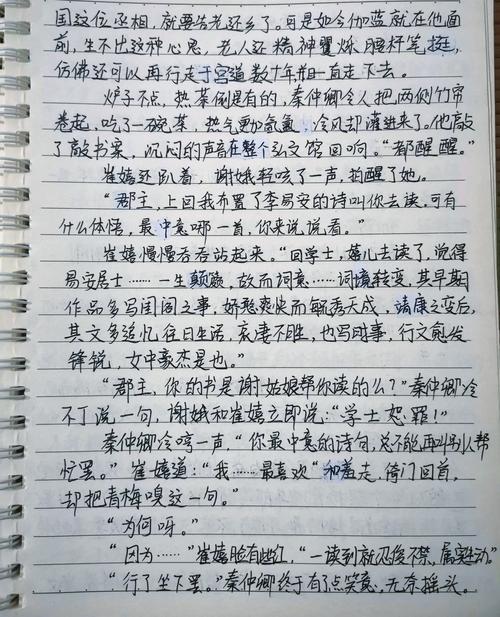 国这位丞相，就要告老还乡了。可是如今伽蓝就在他面
前，生不出这种心思，老人还精神矍烁，腰杆笔挺，
仿佛还可以再行走于宫道数十年，如一直走下去。
炉子不点，热茶倒是有的，秦仲卿令人把两侧竹帘
卷起，吃了一碗茶，热气更加氤氲，冷风却灌进来了。他敲
了敲书案，沉闷的声音在整个弘文馆回响。“都醒醒。”
崔嬉还趴着，谢娥轻咳了一声，拍醒了她。
“郡主，上回我布置了李易安的诗叫你去读，可有
什么体悟，最中意哪一首，你来说说看。”
崔嬉慢慢吞吞站起来。“回学士，嬉儿去读了，觉得
易安居士……一生颠簸，故而词意……词境转变，其早期
作品多写闺阁之事，娇憨爽快而毓秀天成，靖康之变后，
其文多追忆往日生活，哀凄不胜，也写时事，行文愈发
锋锐，女中豪杰是也。”
“郡主，你的书是谢姑娘帮你读的么？”秦仲卿冷
不丁说一句，谢娥和崔嬉立即说：“学士恕罪！”
秦仲卿冷哼一声，“你最中意的诗句，总不能再叫别人帮
忙罢。”崔嬉道：“我……最喜欢“和羞走，倚门回首，
却把青梅嗅这一句。”
“为何呀。”
“因为……”崔嬉脸有些红，“一读到就忍俊不禁，属实生动。”
“行了坐下罢。”秦仲卿终于有了点笑意，无奈摇头。